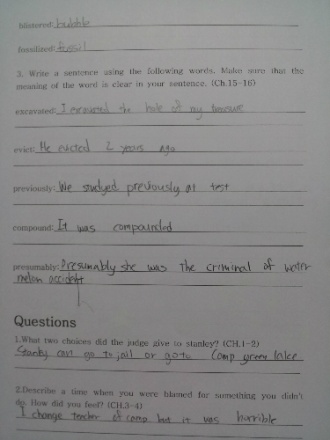 blistered: bubble
fossilized: fossil
3. Write a sentence using the following words. Make sure that the
meaning of the word is clear in your sentence. (Ch.15-16)
excavated: I excavated the hole of my treasure
evict: He evicted 2 years ago
previously: We studied previously at test
compound: It was compounded
presumably: Presumably she was the criminal of water
melon accident
Questions
1.What two choices did the judge give to stanley? (CH.1-2)
Stanley can go to jail or go to camp green lake
2.Describe a time when you were blamed for something you didn't
do. How did you feel? (CH.3-4)
I change tracher of camp but it was horrible